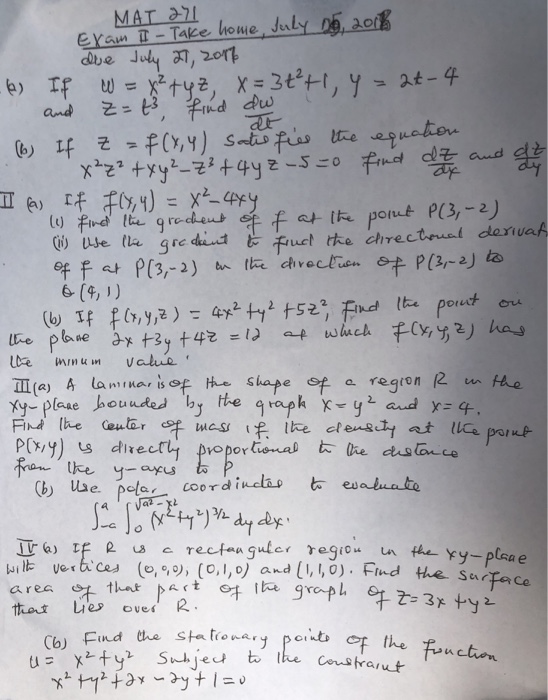 MAT 271
Exam II - Take home, July 05, 2018
due July 27, 2018
a) If w = x² + yz, x = 3t² + 1, y = 2t - 4
and z = t³, find dw/dt
(b) If z = f(x, y) satisfies the equation
x²z² + xy² - z³ + 4yz - 5 = 0 find dz/dx and dz/dy
II (a) If f(x, y) = x² - 4xy
(i) find the gradient of f at the point P(3, -2)
(ii) Use the gradient to find the directional derivat
of f at P(3, -2) in the direction of P(3, -2) to
Q (4, 1)
(b) If f(x, y, z) = 4x² + y² + 5z², find the point on
the plane 2x + 3y + 4z = 12 at which f(x, y, z) has
the minum value.
III (a) A laminar is of the shape of a region R in the
xy-plane bounded by the graph x = y² and x = 4.
Find the center of mass if the density at the point
P(x, y) is directly proportional to the distance
from the y-axis to P
(b) Use polar coordindtes to evaluate
∫₋ₐᵃ ∫₀^√(a² - x²) (x² + y²)^3/2 dy dx.
IV (a) If R is a rectangular region in the xy-plane
with vertices (0, 0, 0), (0, 1, 0) and (1, 1, 0). Find the surface
area of that part of the graph of z = 3x + y²
that lies over R.
(b) Find the stationary points of the function
u = x² + y² Subject to the constraint
x² + y² + 2x - 2y + 1 = 0